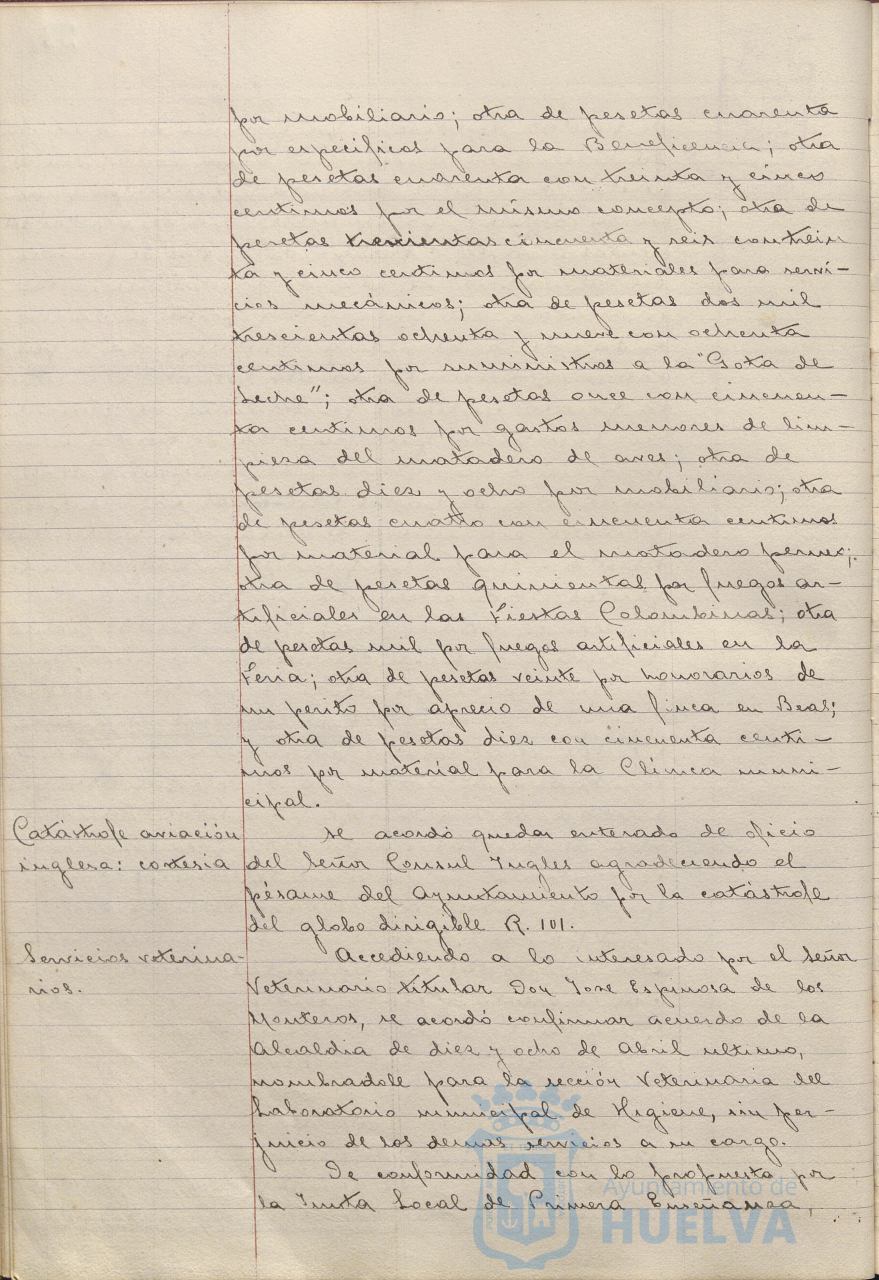 por mobiliario; otra de pesetas cuarenta
por especificos para la Beneficencia; otra
de pesetas cuarenta con treinta y cinco
centimos por el mismo concepto; otra de
pesetas trescientas cincuenta y seis con trein
ta y cinco centimos por materiales para servi-
cios mecánicos; otra de pesetas dos mil
trescientas ochenta y nueve con ochenta
centimos por suministros a la "Gota de
Leche"; otra de pesetas once con cincuen-
ta centimos por gastos menores de lim-
pieza del matadero de aves; otra de
pesetas diez y ocho por mobiliario; otra
de pesetas cuatro con cincuenta centimos
por material para el matadero
otra de pesetas quinientas por fuegos ar-
tificiales en las Fiestas Colombinas; otra
de pesetas mil por fuegos artificiales en la
Feria; otra de pesetas veinte por honorarios de
un perito por aprecio de una finca en Beas;
y otra de pesetas diez con cincuenta centi-
mos por material para la Clinica muni-
cipal.
Catástrofe aviación
inglesa: cortesia
Se acordó quedar enterado de oficio
del Señor Consul Ingles agradeciendo el
pésame del Ayuntamiento por la catástrofe
del globo dirigible R. 101.
Servicios veterina-
rios.
Accediendo a lo interesado por el Señor
Veterinario titular Don Jose Espinosa de los
Monteros, se acordó confirmar acuerdo de la
Alcaldia de diez y ocho de Abril ultimo,
nombradole para la sección Veterinaria del
Laboratorio municipal de Higiene, sin per-
juicio de los demas servicios a su cargo.
De conformidad con lo propuesta por
la Junta Local de Primera Enseñanza,
Ayuntamiento de
HUELVA